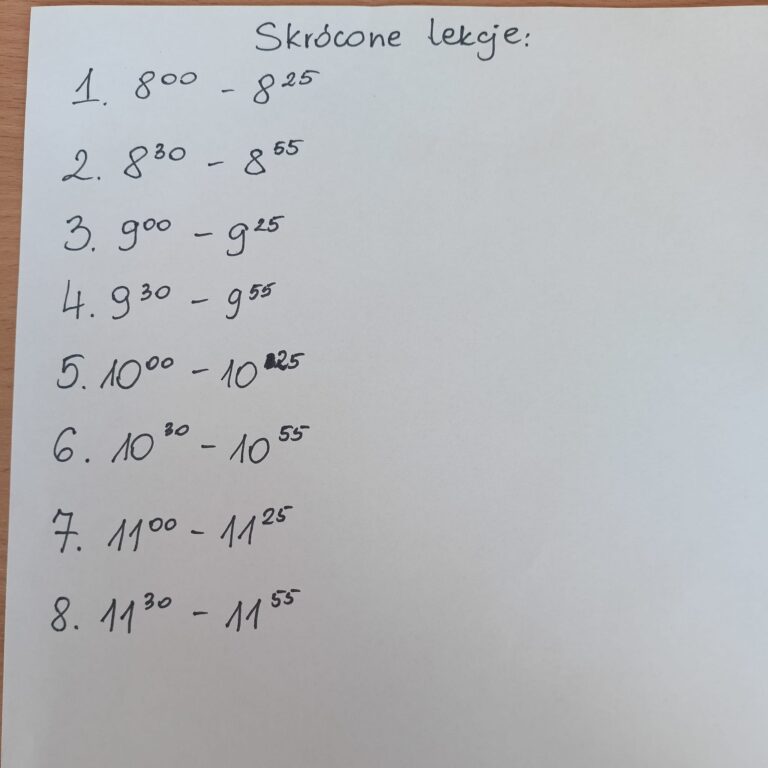 Skrócone lekcje:
1. 8⁰⁰ - 8²⁵
2. 8³⁰ - 8⁵⁵
3. 9⁰⁰ - 9²⁵
4. 9³⁰ - 9⁵⁵
5. 10⁰⁰ - 10²⁵
6. 10³⁰ - 10⁵⁵
7. 11⁰⁰ - 11²⁵
8. 11³⁰ - 11⁵⁵